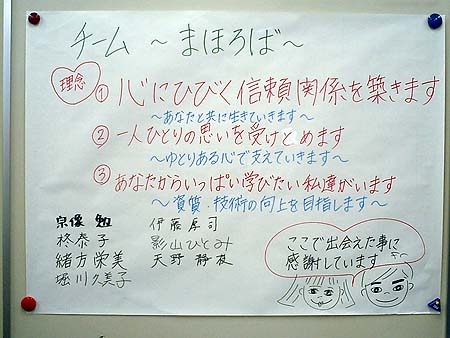 チーム ～まほろば～
理念
① 心にひびく信頼関係を築きます
～あなたと共に生きていきます～
② 一人ひとりの思いを受けとめます
～ゆとりある心で支えていきます～
③ あなたからいっぱい学びたい私達がいます
～資質・技術の向上を目指します～
宗像 勉
柊 泰子
緒方 栄美
堀川 久美子
伊藤 司
影山 ひとみ
天野 静
ここで出会えた事に
感謝しています